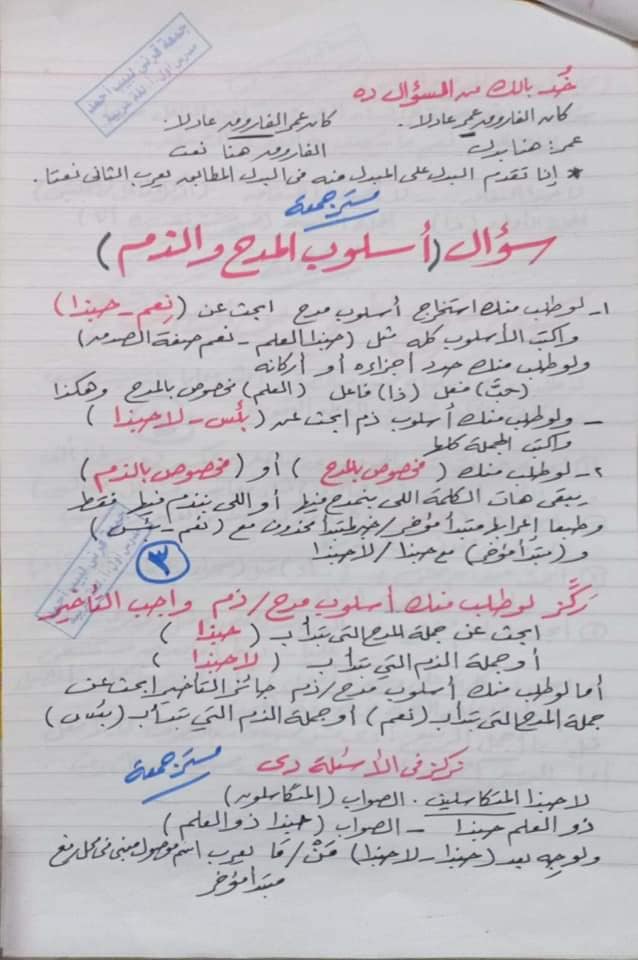 جمعة قرني لبيب أحمد
مدرس أول أ. لغة عربية
خُد بالك من السؤال ده
كان الفاروق عمر عادلا. كان عمر الفاروق عادلا.
عمر: هنا بدل الفاروق هنا نعت
* إذا تقدم البدل على المبدل منه فى البدل المطابق يعرب الثانى نعتا.
مستر جمعة
سؤال (أسلوب المدح والذم)
١- لو طلب منك استخراج أسلوب مدح ابحث عن (نِعم - حبذا)
واكتب الأسلوب كله مثل (حبذا العلم - نعم صفة الصدق)
ولو طلب منك حدد أجزاءه أو أركانه
(حبَّ) فعل (ذا) فاعل (العلم) مخصوص بالمدح وهكذا
- ولو طلب منك أسلوب ذم ابحث عن (بئس - لا حبذا)
واكتب الجملة كلها
٢- لو طلب منك (مخصوص بالمدح) أو (مخصوص بالذم)
يبقى هات الكلمة اللى بنمدح فيها أو اللى بنذم فيها فقط
وطبعا إعرابها مبتدأ مؤخر/خبر لمبتدأ محذوف مع (نعم - بئس)
و (مبتدأ مؤخر) مع حبذا / لا حبذا
٣
رَكِّز لو طلب منك أسلوب مدح/ذم واجب التأخير
ابحث عن جملة المدح التى تبدأ بـ (حبذا)
أو جملة الذم التي تبدأ بـ (لا حبذا)
أما لو طلب منك أسلوب مدح/ذم جائز التأخير ابحث عن
جملة المدح التى تبدأ بـ (نعم) أو جملة الذم التى تبدأ بـ (بئس)
تركز فى الأسئلة دى مستر جمعة
لا حبذا المتكاسلين. الصواب (المتكاسلون)
ذو العلم حبذا - الصواب (حبذا ذو العلم)
ولو جه بعد (حبذا - لا حبذا) مَنْ/مَا يعرب اسم موصول مبنى فى محل رفع
مبتدأ مؤخر